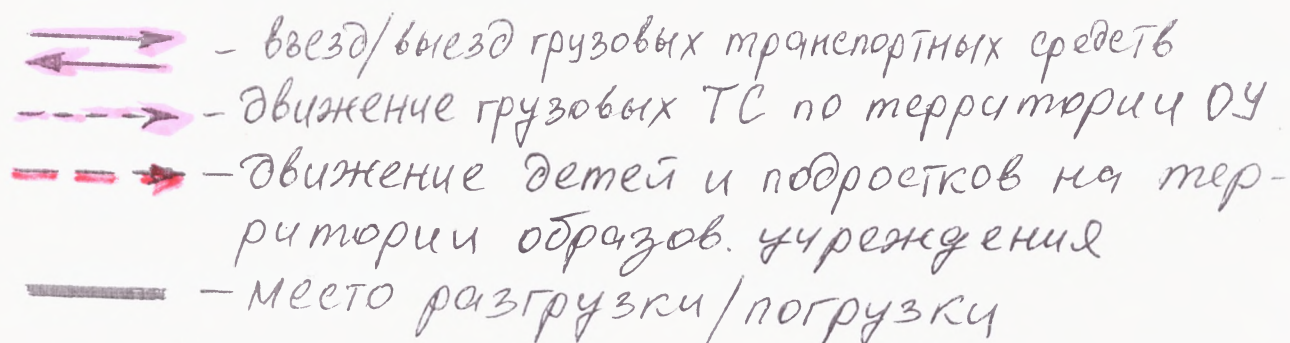 – въезд/выезд грузовых транспортных средств
– движение грузовых ТС по территории ОУ
– движение детей и подростков на тер-
ритории образов. учреждения
– место разгрузки/погрузки